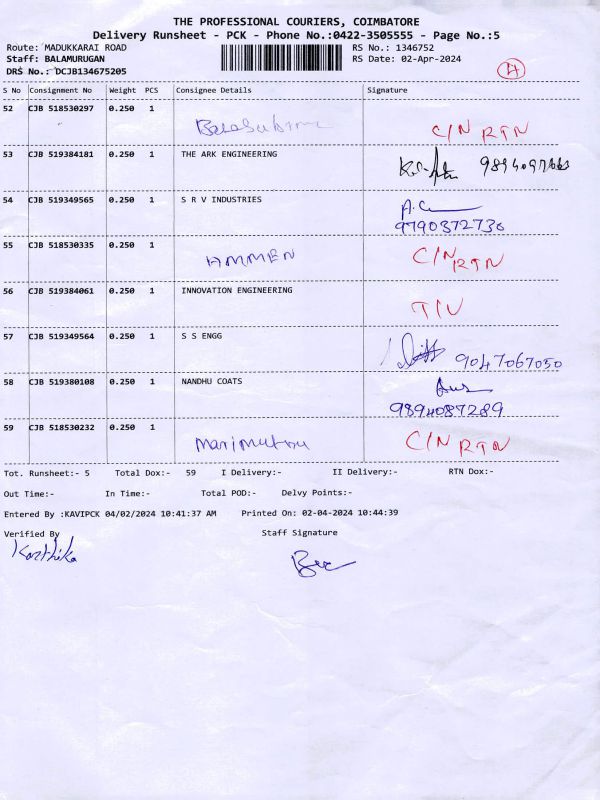 THE PROFESSIONAL COURIERS, COIMBATORE
Delivery Runsheet - PCK - Phone No.:0422-3505555 - Page No.:5
Route: MADUKKARAI ROAD RS No.: 1346752
Staff: BALAMURUGAN RS Date: 02-Apr-2024
DRS No.: DCJB134675205 A
S No Consignment No Weight PCS Consignee Details Signature
52 CJB 518530297 0.250 1 C/N RTN
53 CJB 519384181 0.250 1 THE ARK ENGINEERING
54 CJB 519349565 0.250 1 S R V INDUSTRIES
9790372736
55 CJB 518530335 0.250 1 AMMEN C/N RTN
56 CJB 519384061 0.250 1 INNOVATION ENGINEERING T/U
57 CJB 519349564 0.250 1 S S ENGG 9047067050
58 CJB 519380108 0.250 1 NANDHU COATS
9894087289
59 CJB 518530232 0.250 1 Marimuttu C/N RTN
Tot. Runsheet:- 5 Total Dox:- 59 I Delivery:- II Delivery:- RTN Dox:-
Out Time:- In Time:- Total POD:- Delvy Points:-
Entered By :KAVIPCK 04/02/2024 10:41:37 AM Printed On: 02-04-2024 10:44:39
Verified By Staff Signature
Karthika